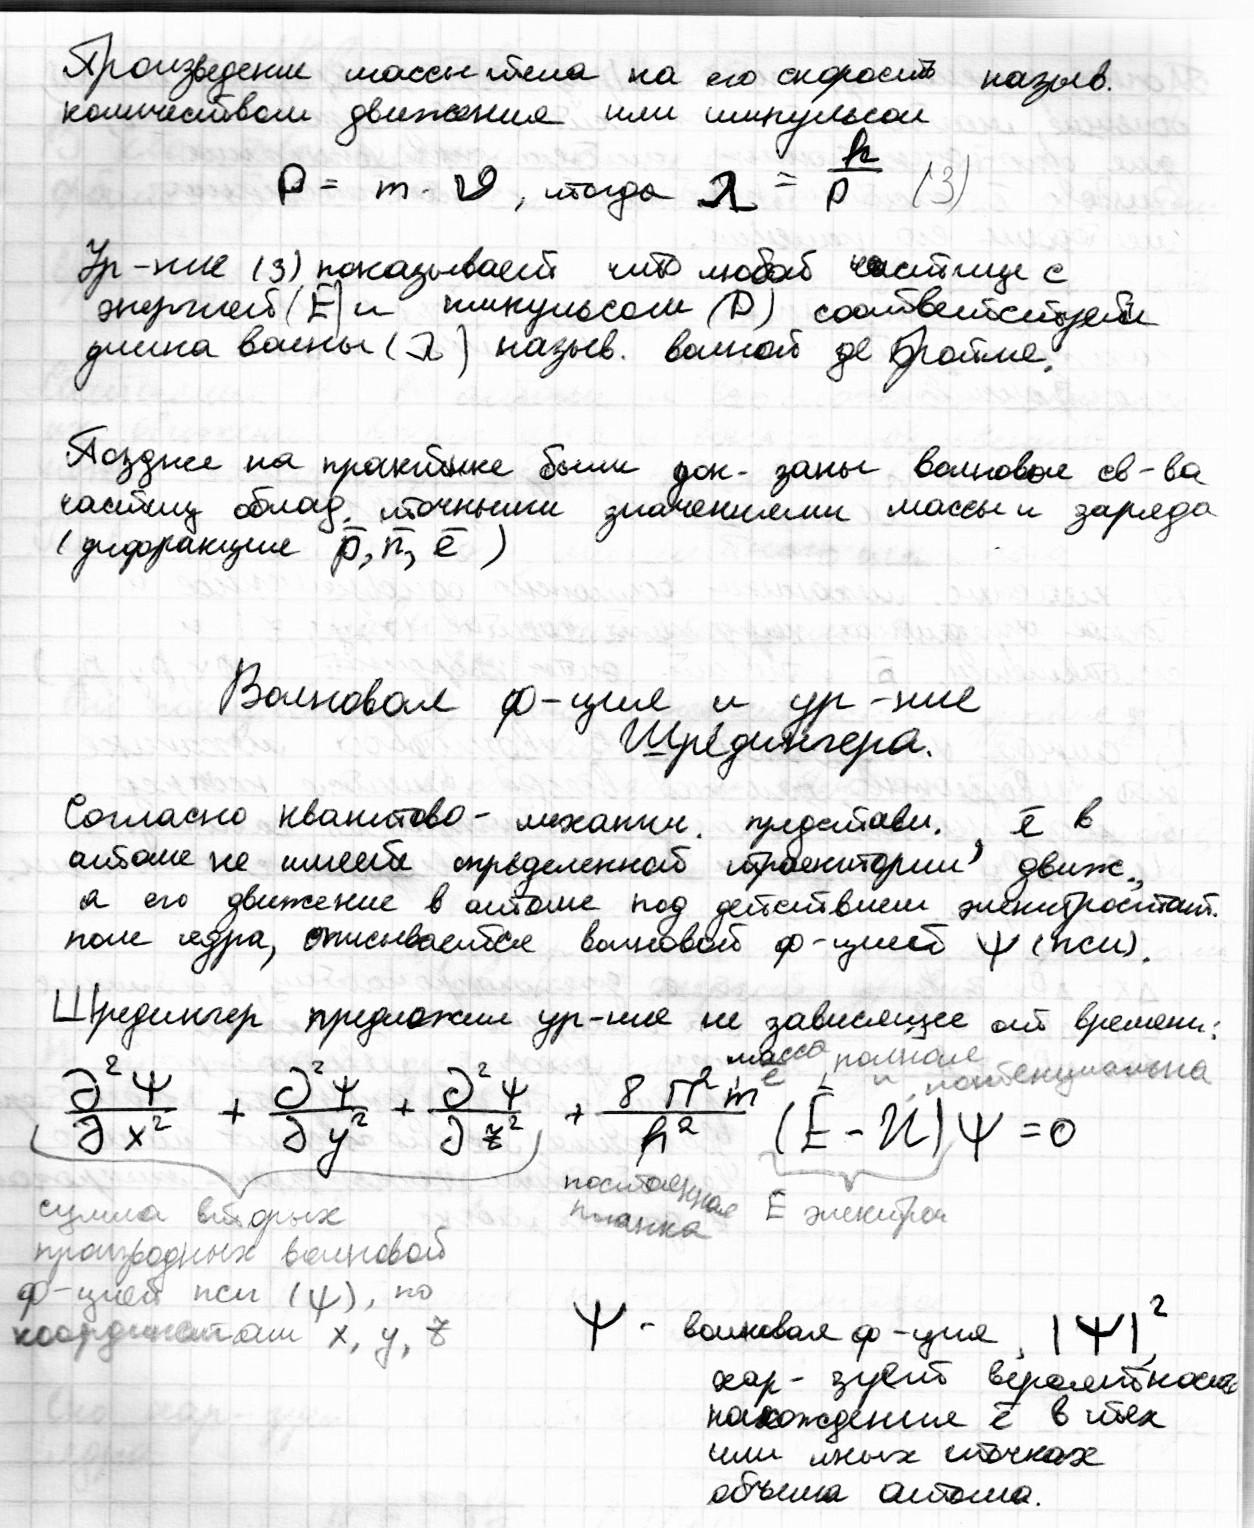 Произведение массы тела на его скорость назыв.
количеством движения или импульсом
P = m · υ, тогда λ = h/p (3)
Ур-ние (3) показывает что любой частице с
энергией (E) и импульсом (P) соответствует
длина волны (λ) назыв. волной де Бройля.
Позднее на практике были док-заны волновые св-ва
частиц облад. точными значениями массы и заряда
(дифракция p̄, n̄, ē)
Волновая ф-ция и ур-ние
Шрёдингера.
Согласно квантово-механич. представл., ē в
атоме не имеет определенной траектории движ.,
а его движение в атоме под действием электростат.
поля ядра, описывается волновой ф-цией ψ (пси).
Шрёдингер предложил ур-ние не зависящее от времени:
масса ē полная и потенциальная
∂²ψ/∂x² + ∂²ψ/∂y² + ∂²ψ/∂z² + 8π²m/h² (E - U)ψ = 0
постоянная планка
E электрон
сумма вторых
производных волновой
ф-цией пси (ψ), по
координатам x, y, z
ψ - волновая ф-ция, |ψ|²
хар-зует вероятность
нахождения ē в тех
или иных точках
объема атома.